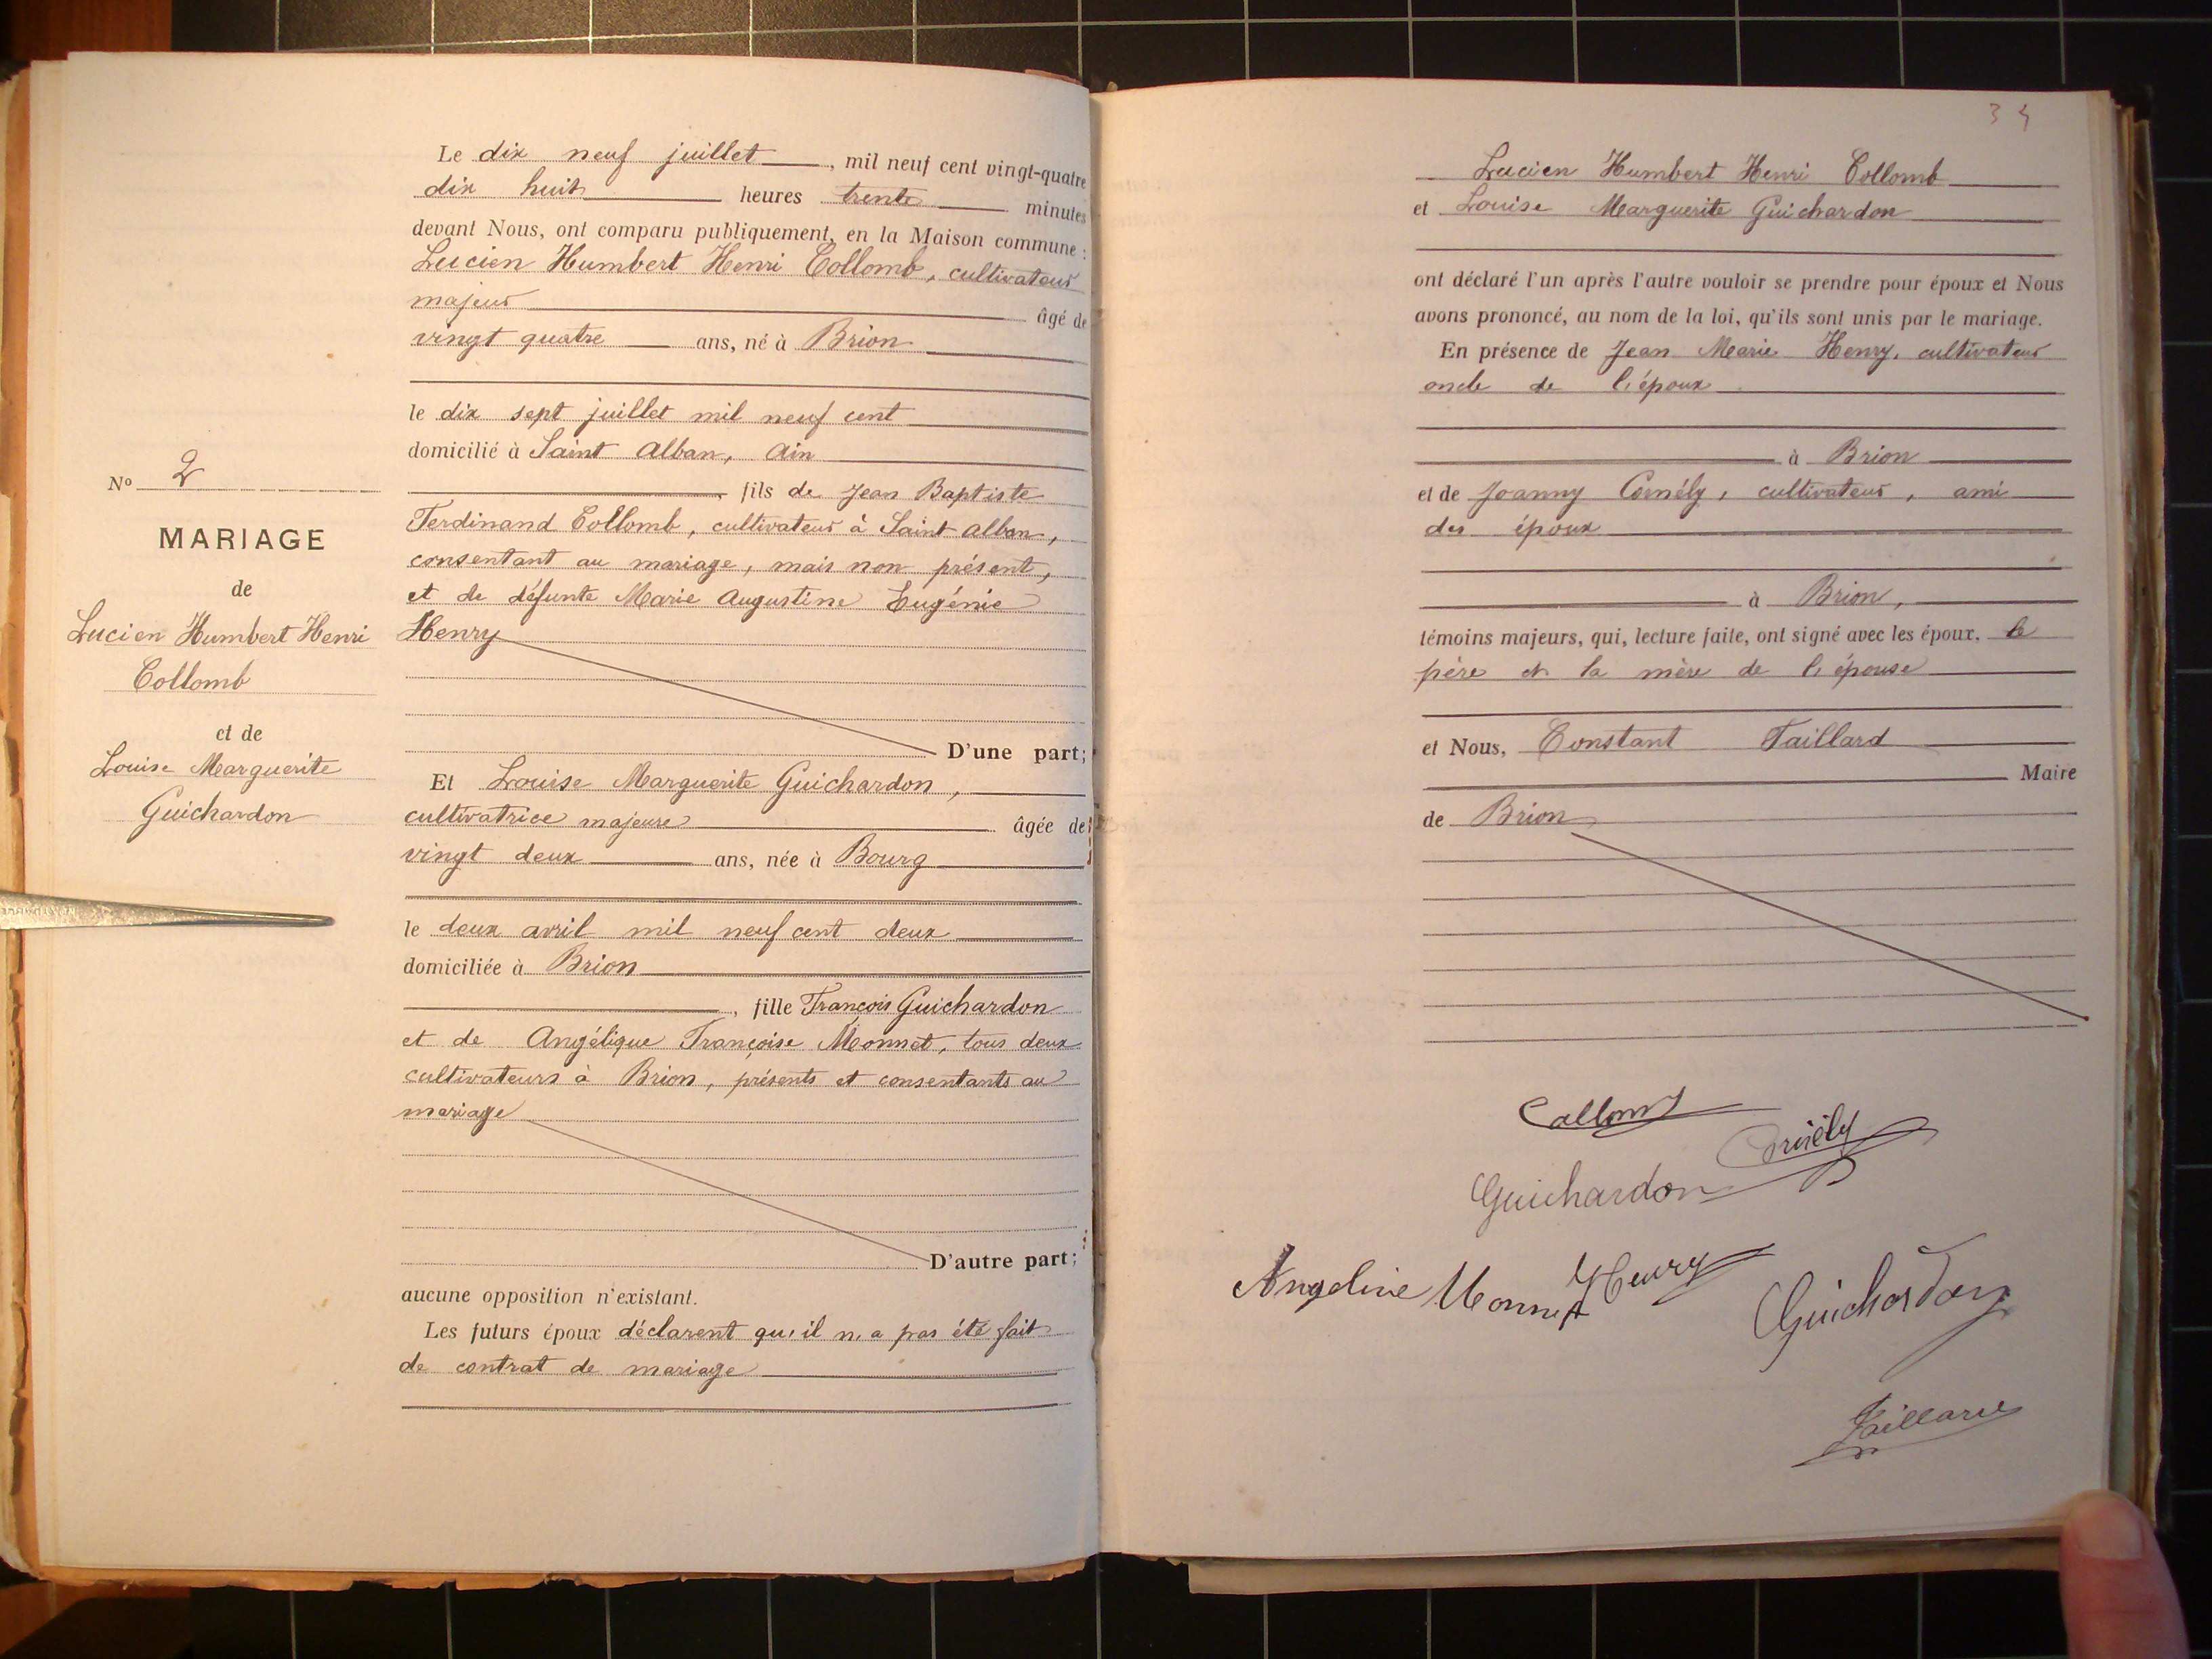 Nº 2
MARIAGE
de
Lucien Humbert Henri
Collomb
et de
Louise Marguerite
Guichardon
Le dix neuf juillet, mil neuf cent vingt-quatre
dix huit heures trente minutes
devant Nous, ont comparu publiquement, en la Maison commune :
Lucien Humbert Henri Collomb, cultivateur
majeur âgé de
vingt quatre ans, né à Brion
le dix sept juillet mil neuf cent
domicilié à Saint Alban, Ain
, fils de Jean Baptiste
Ferdinand Collomb, cultivateur à Saint Alban,
consentant au mariage, mais non présent,
et de défunte Marie Augustine Eugénie
Henry
D'une part;
Et Louise Marguerite Guichardon,
cultivatrice majeure âgée de
vingt deux ans, née à Bourg
le deux avril mil neuf cent deux
domiciliée à Brion
, fille François Guichardon
et de Angélique Françoise Monnet, tous deux
cultivateurs à Brion, présents et consentants au
mariage
D'autre part;
aucune opposition n'existant.
Les futurs époux déclarent qu'il n'a pas été fait
de contrat de mariage
34
Lucien Humbert Henri Collomb
et Louise Marguerite Guichardon
ont déclaré l'un après l'autre vouloir se prendre pour époux et Nous
avons prononcé, au nom de la loi, qu'ils sont unis par le mariage.
En présence de Jean Marie Henry, cultivateur
oncle de l'époux
à Brion
et de Joanny Cornély, cultivateur, ami
des époux
à Brion,
témoins majeurs, qui, lecture faite, ont signé avec les époux, le
père et la mère de l'épouse
et Nous, Constant Taillard
Maire
de Brion
Collomb
Cornély
Guichardon
Angeline Monnet
Henry
Guichardon
Taillard